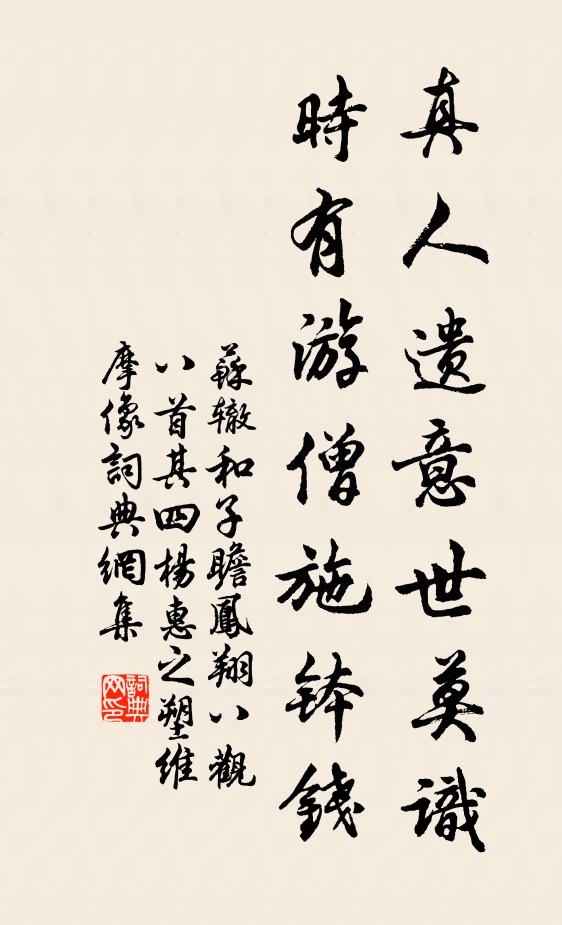 真人遗意世莫識
時有游僧施钵錢
蘇辙和子瞻鳳翔八觀
八首其四楊惠之塑維
摩像詞典網集
詞典网印